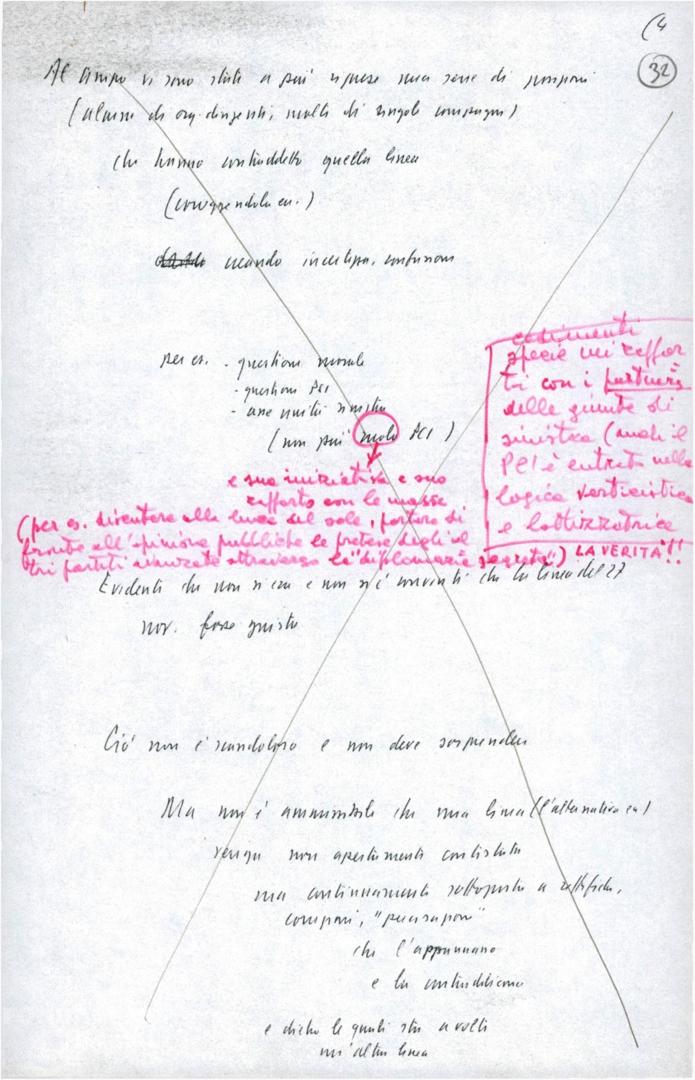 (4
32
Al tempo vi sono state a più riprese una serie di
(alcune di org. dirigenti, molte di singoli compagni)
che hanno contraddetto quella linea
(correggendola ecc.)
creando incertezza, confusione
per es. - questione morale
- questione PCI
- unità sinistra
(non più ruolo PCI)
e sua iniziativa e suo
rapporto con le masse
(per es. discutere alla luce del sole, portare di
fronte all'opinione pubblica le pretese degli al
tri partiti avanzate attraverso la "diplomazia segreta")
cedimenti
specie nei rappor
ti con i partners
delle giunte di
sinistra (anche il
PCI è entrato nella
logica verticistica
e lottizzatrice
LA VERITÀ!!
Evidente che non si era e non si è convinti che la linea del 27
nov. fosse giusta
Ciò non è scandaloso e non deve sorprendere
Ma non è ammissibile che una linea (l'alternativa ecc.)
venga non apertamente contestata
ma continuamente sottoposta a rettifiche,
correzioni, "precisazioni"
che l'appannano
e la contraddicono
e dietro le quali sta a volte
un'altra linea